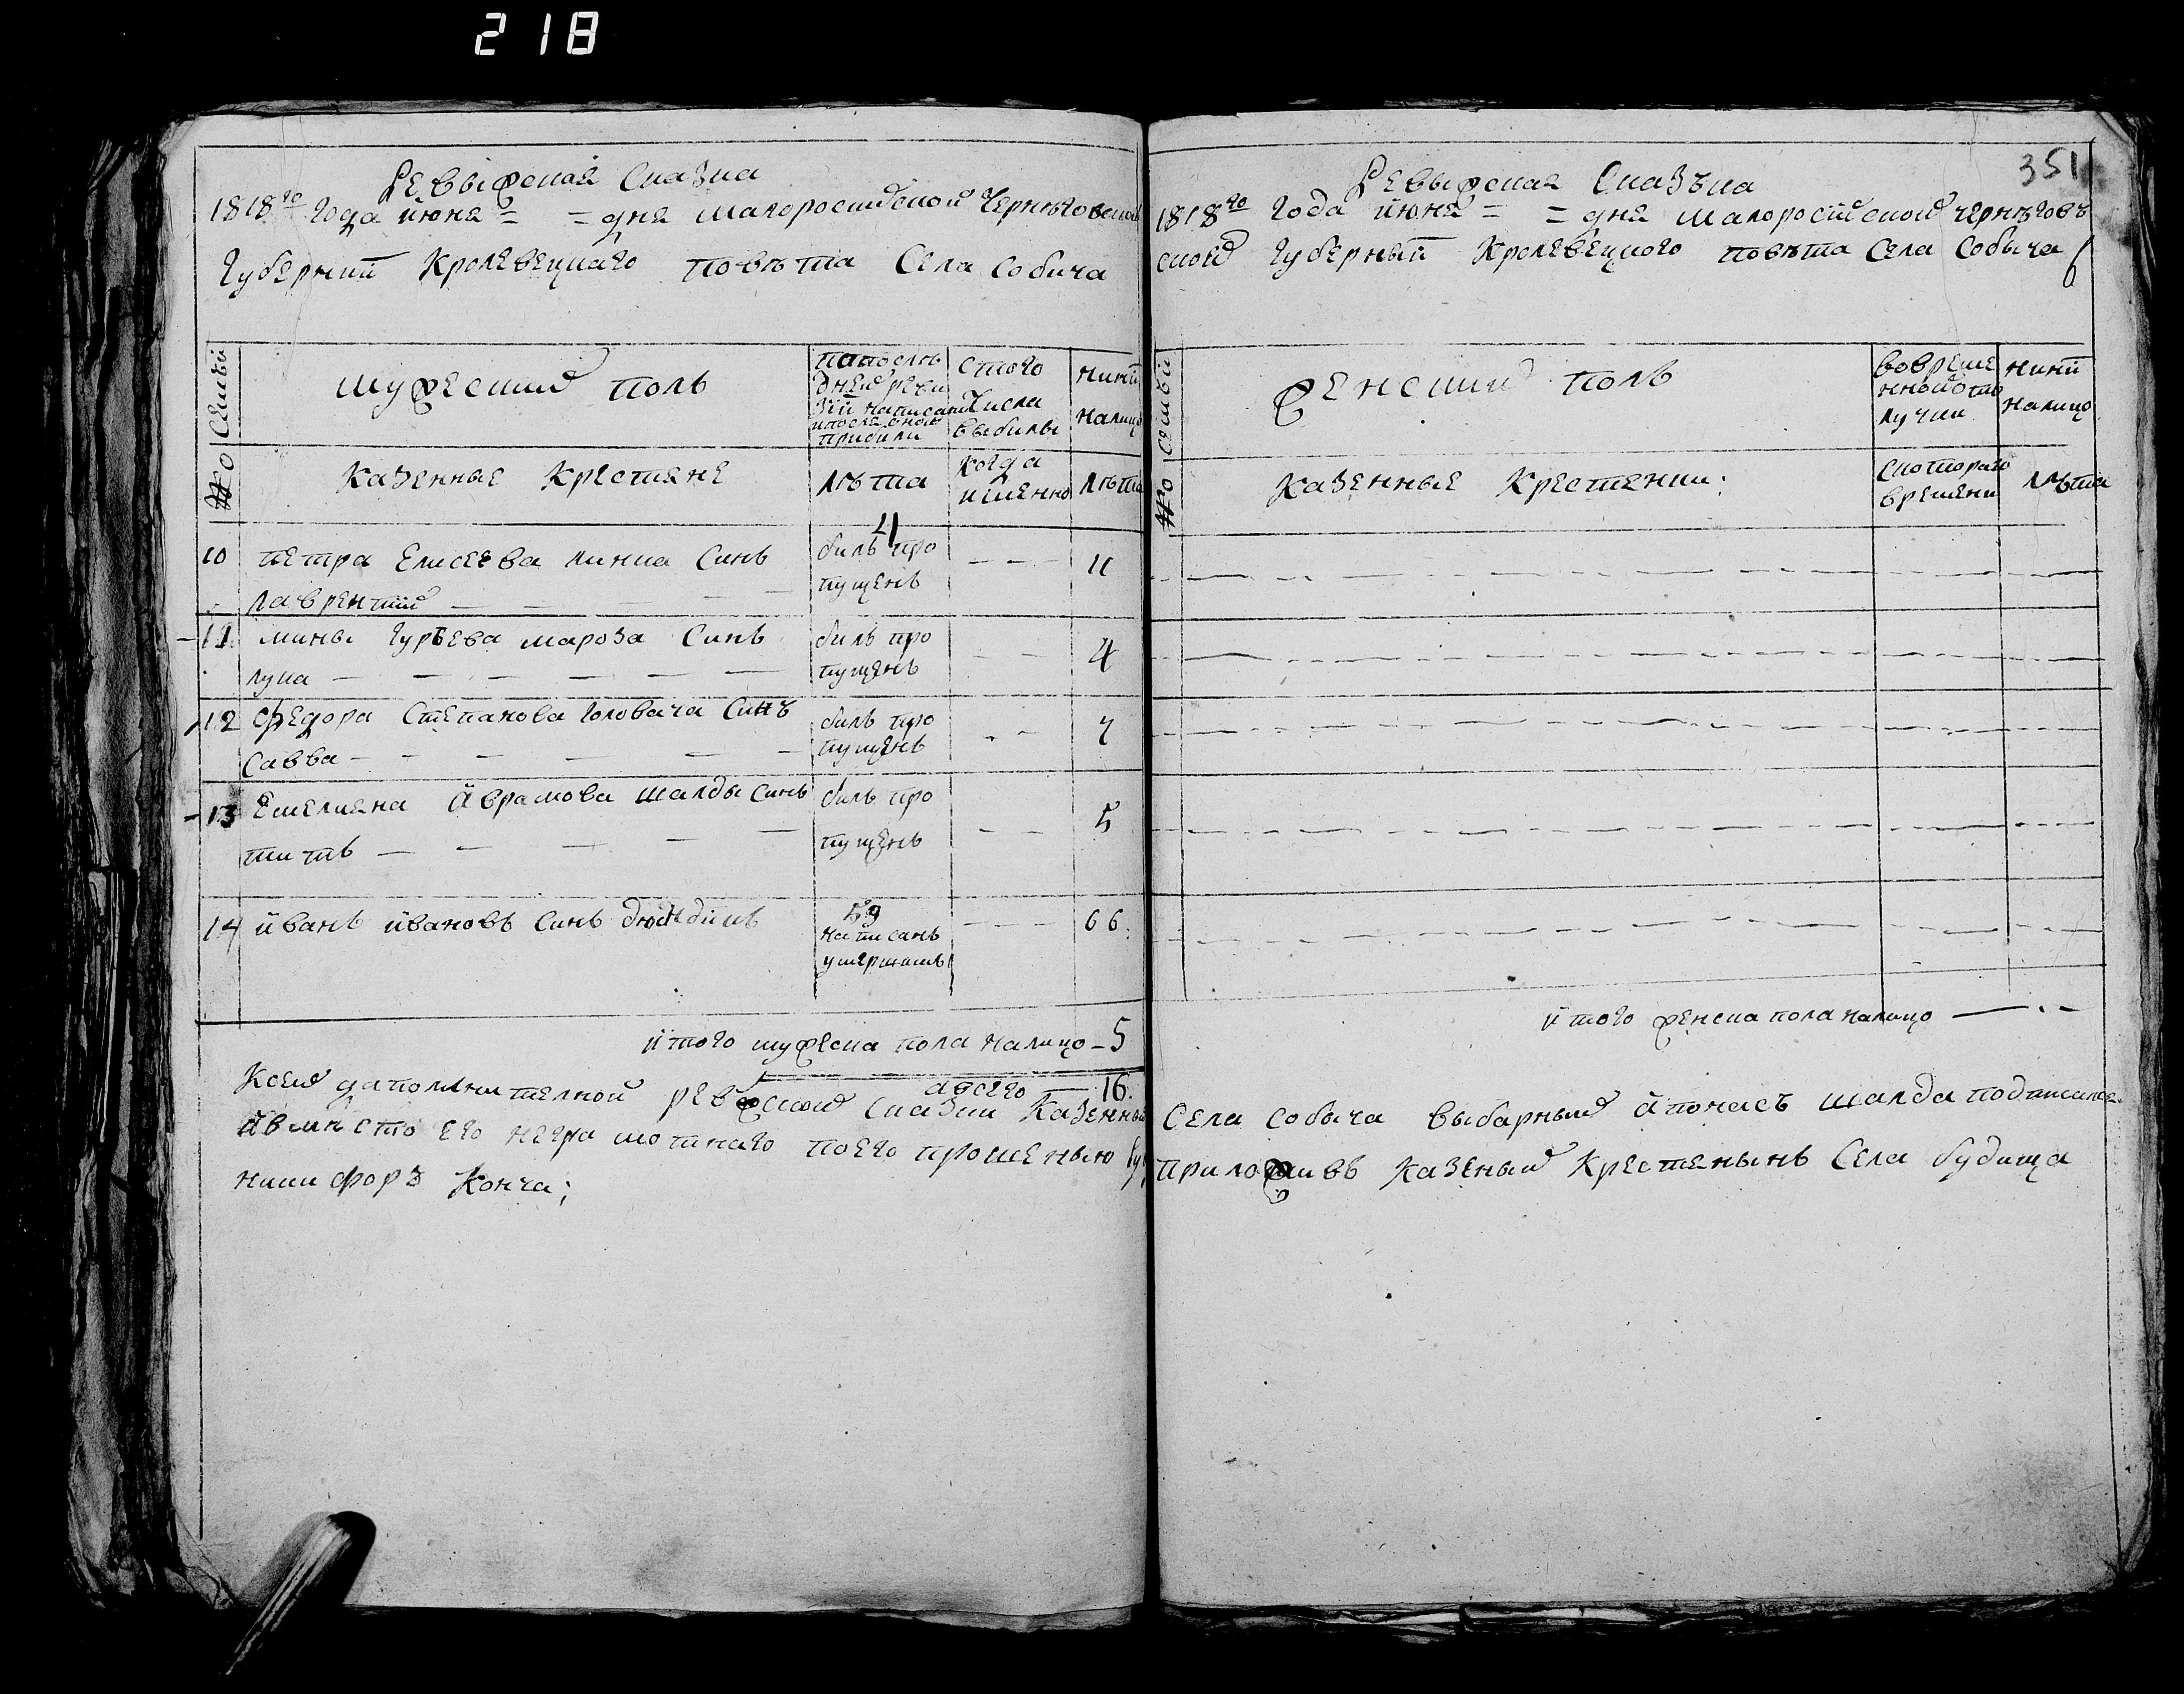 218
Ревыжская Сказка
1818го Года июня = = дня Малоросийской Черниговской
Губерний Кролевецкаго повѣта Села Собича
№о Семьй
мужеский поль
попослѣ
дней реви
зій написани
ипосля оной
прибили
стого
Числа
выбилы
нинѣ
налицо
Казенные Крестяне
лѣта
когда
именно
лѣта
10 петра Елисеева линка Синь
лаврентий — — — — —
4
биль про
пущень
- - -
11
-11 мины Гурѣева мароза Синь
лука — — — — — —
биль про
пущень
- -
4
12 федора Степанова Головача Синъ
Савва - - - — — —
биль про
пущень
- -
7
-13 Емелияна Аврамова шалды синь
титъ — — — — —
биль про
пущень
- - -
5
14 иванъ ивановъ Синь
59
написань
умершимъ
- - -
66.
итого мужеска пола налицо - 5
авсего — 16.
Ксей дополнителной рев жской сказки Казенный
Авмѣсто его неграмотнаго поего прошенью
никифоръ Конча;
351
Ревыжская Сказъка
1818го Года июня = = дня малоросийской чернѣговъ
ской Губерный Кролевецкого повѣта Села Собыча
№о семьй
женский поль
вовреме
нной отлу
лучки
нинѣ
налицо
Казенные Крестянки:
скоторого
времени
лѣта
итого женска пола налицо — . -
Села собыча выборный Апонасъ шалда подписался
приложивъ Казеный Крестянынь Села будища